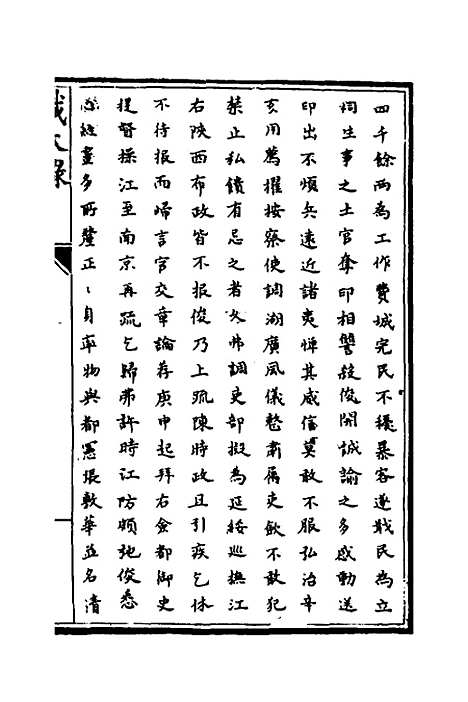 四千餘兩為工作費城完民不擾暴客遂戢民為立
祠生事之土官奪印相讐殺俊開誠諭之多感動送
印出不煩兵遠近諸夷憚其威信莫敢不服弘治辛
亥用薦擢按察使調湖廣風儀整肅屬吏歛不敢犯
禁止私饋有忌之者以弗調吏部擬為延綏巡撫江
右陝西布政皆不報俊乃上疏陳時政且引疾乞休
不待報而歸言官交章論荐庚申起拜右僉都御史
提督操江至南京再疏乞歸弗許時江防頗弛俊悉
心經畫多所釐正正身率物與都憲張敷華並名清